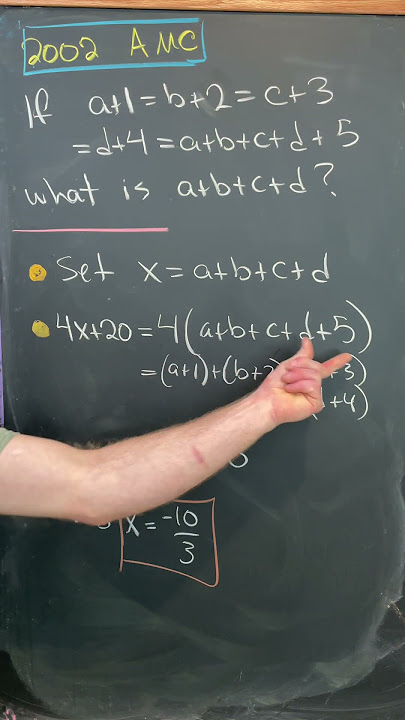 2002 AMC
If a+1=b+2=c+3
=d+4=a+b+c+d+5
what is a+b+c+d?
Set x=a+b+c+d
4x+20=4(a+b+c+d+5)
=(a+1)+(b+2) +3)
+4)
x=-10/3